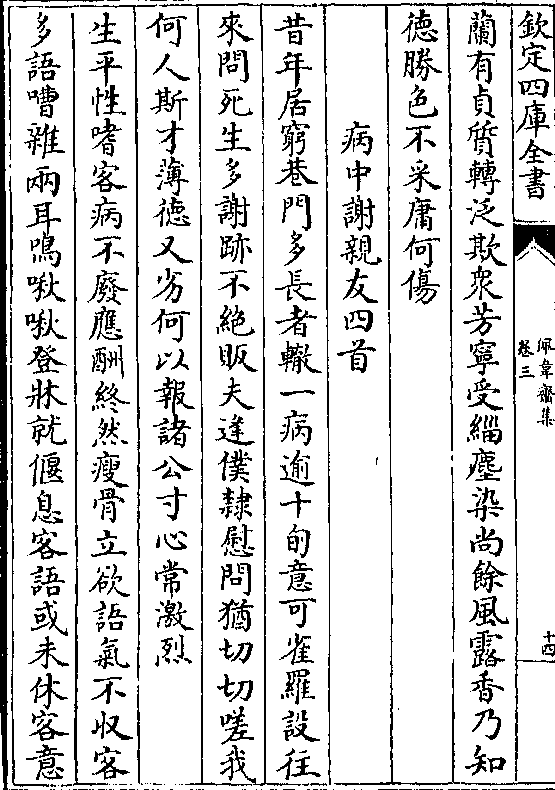 欽定四庫全書
佩韋齋集
卷三
十四
蘭有貞質轉泛欺衆芳寧受緇塵染尚餘風露香乃知
德勝色不采庸何傷
病中謝親友四首
昔年居窮巷門多長者轍一病逾十旬意可雀羅設往
來問死生多謝跡不絶販夫逢僕隸慰問猶切切嗟我
何人斯才薄德又劣何以報諸公寸心常激烈
生平性嗜客病不廢應酬終然瘦骨立欲語氣不収客
多語嘈雜兩耳鳴啾啾登牀就偃息客語或未休客意